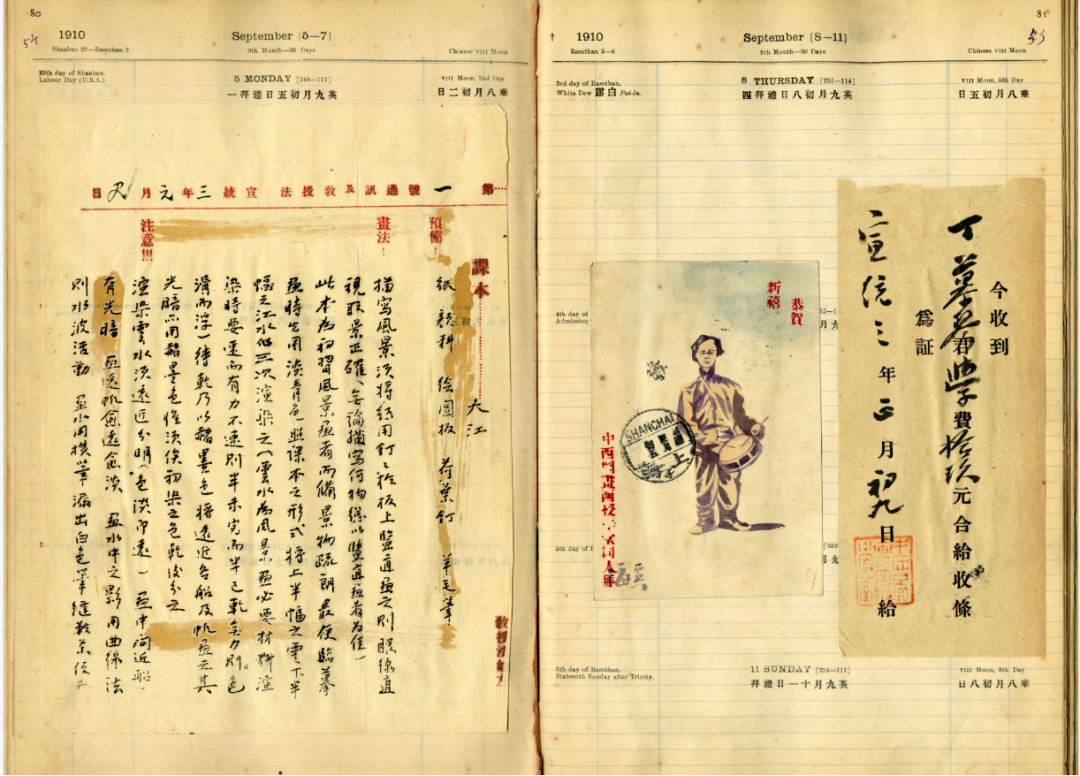 80
1910
September [5—7]
Shaaban 29—Ramthan 2
9th Month—30 Days
Chinese VIII Moon
29th day of Shaaban.
Labour Day (U.S.A.)
5 MONDAY [248—117]
VIII Moon, 2nd Day
英九月初五日禮拜一
華八月初二日
第一號通訊及敎授法 宣統三年元月日
課本 大江
預備! 紙 顏料 繪圖板 荷葉釘 羊毛筆
畫法! 描寫風景須將紙用釘々於板上豎直畫之則眼線直
視取景正確(無論描寫何物總以豎直畫者為佳)
此本為初習風景畫者而備景物疏朗最便臨摹
畫時用淡青色照課本之形式將上半幅之雲下半
幅之江水作三次渲染之(雲水為風景畫必要材料渲
染時要速而有力不速則半未完而半已乾無力則色
滯而浮)待乾乃以赭墨色將遠近各船及帆畫之其
光暗亦用赭墨色惟須俟初染之色乾後分之
注意!!! 渲染雲水須遠近分明(色淡即遠)畫中間近船
有光暗 畫遠帆愈遠愈淡 畫水中之影用曲線法
則水波活動 畫水用筆漏出白色
81
1910
September [8—11]
Ramthan 3—6
9th Month—30 Days
Chinese VIII Moon
53
3rd day of Ramthan.
White Dew 白露 Pai-lu.
8 THURSDAY [251—114]
VIII Moon, 5th Day
英九月初八日禮拜四
華八月初五日
今收到
丁慕琴君學費拾玖元合給收條
為証
宣統三年正月初九日給
恭賀
新禧
SHANGHAI
上海
4th day of
Admission
5th day of
6th day of Ramthan.
Sixteenth Sunday after Trinity.
11 SUNDAY [254—111]
VIII Moon, 8th Day
英九月十一日禮拜
華八月初八日